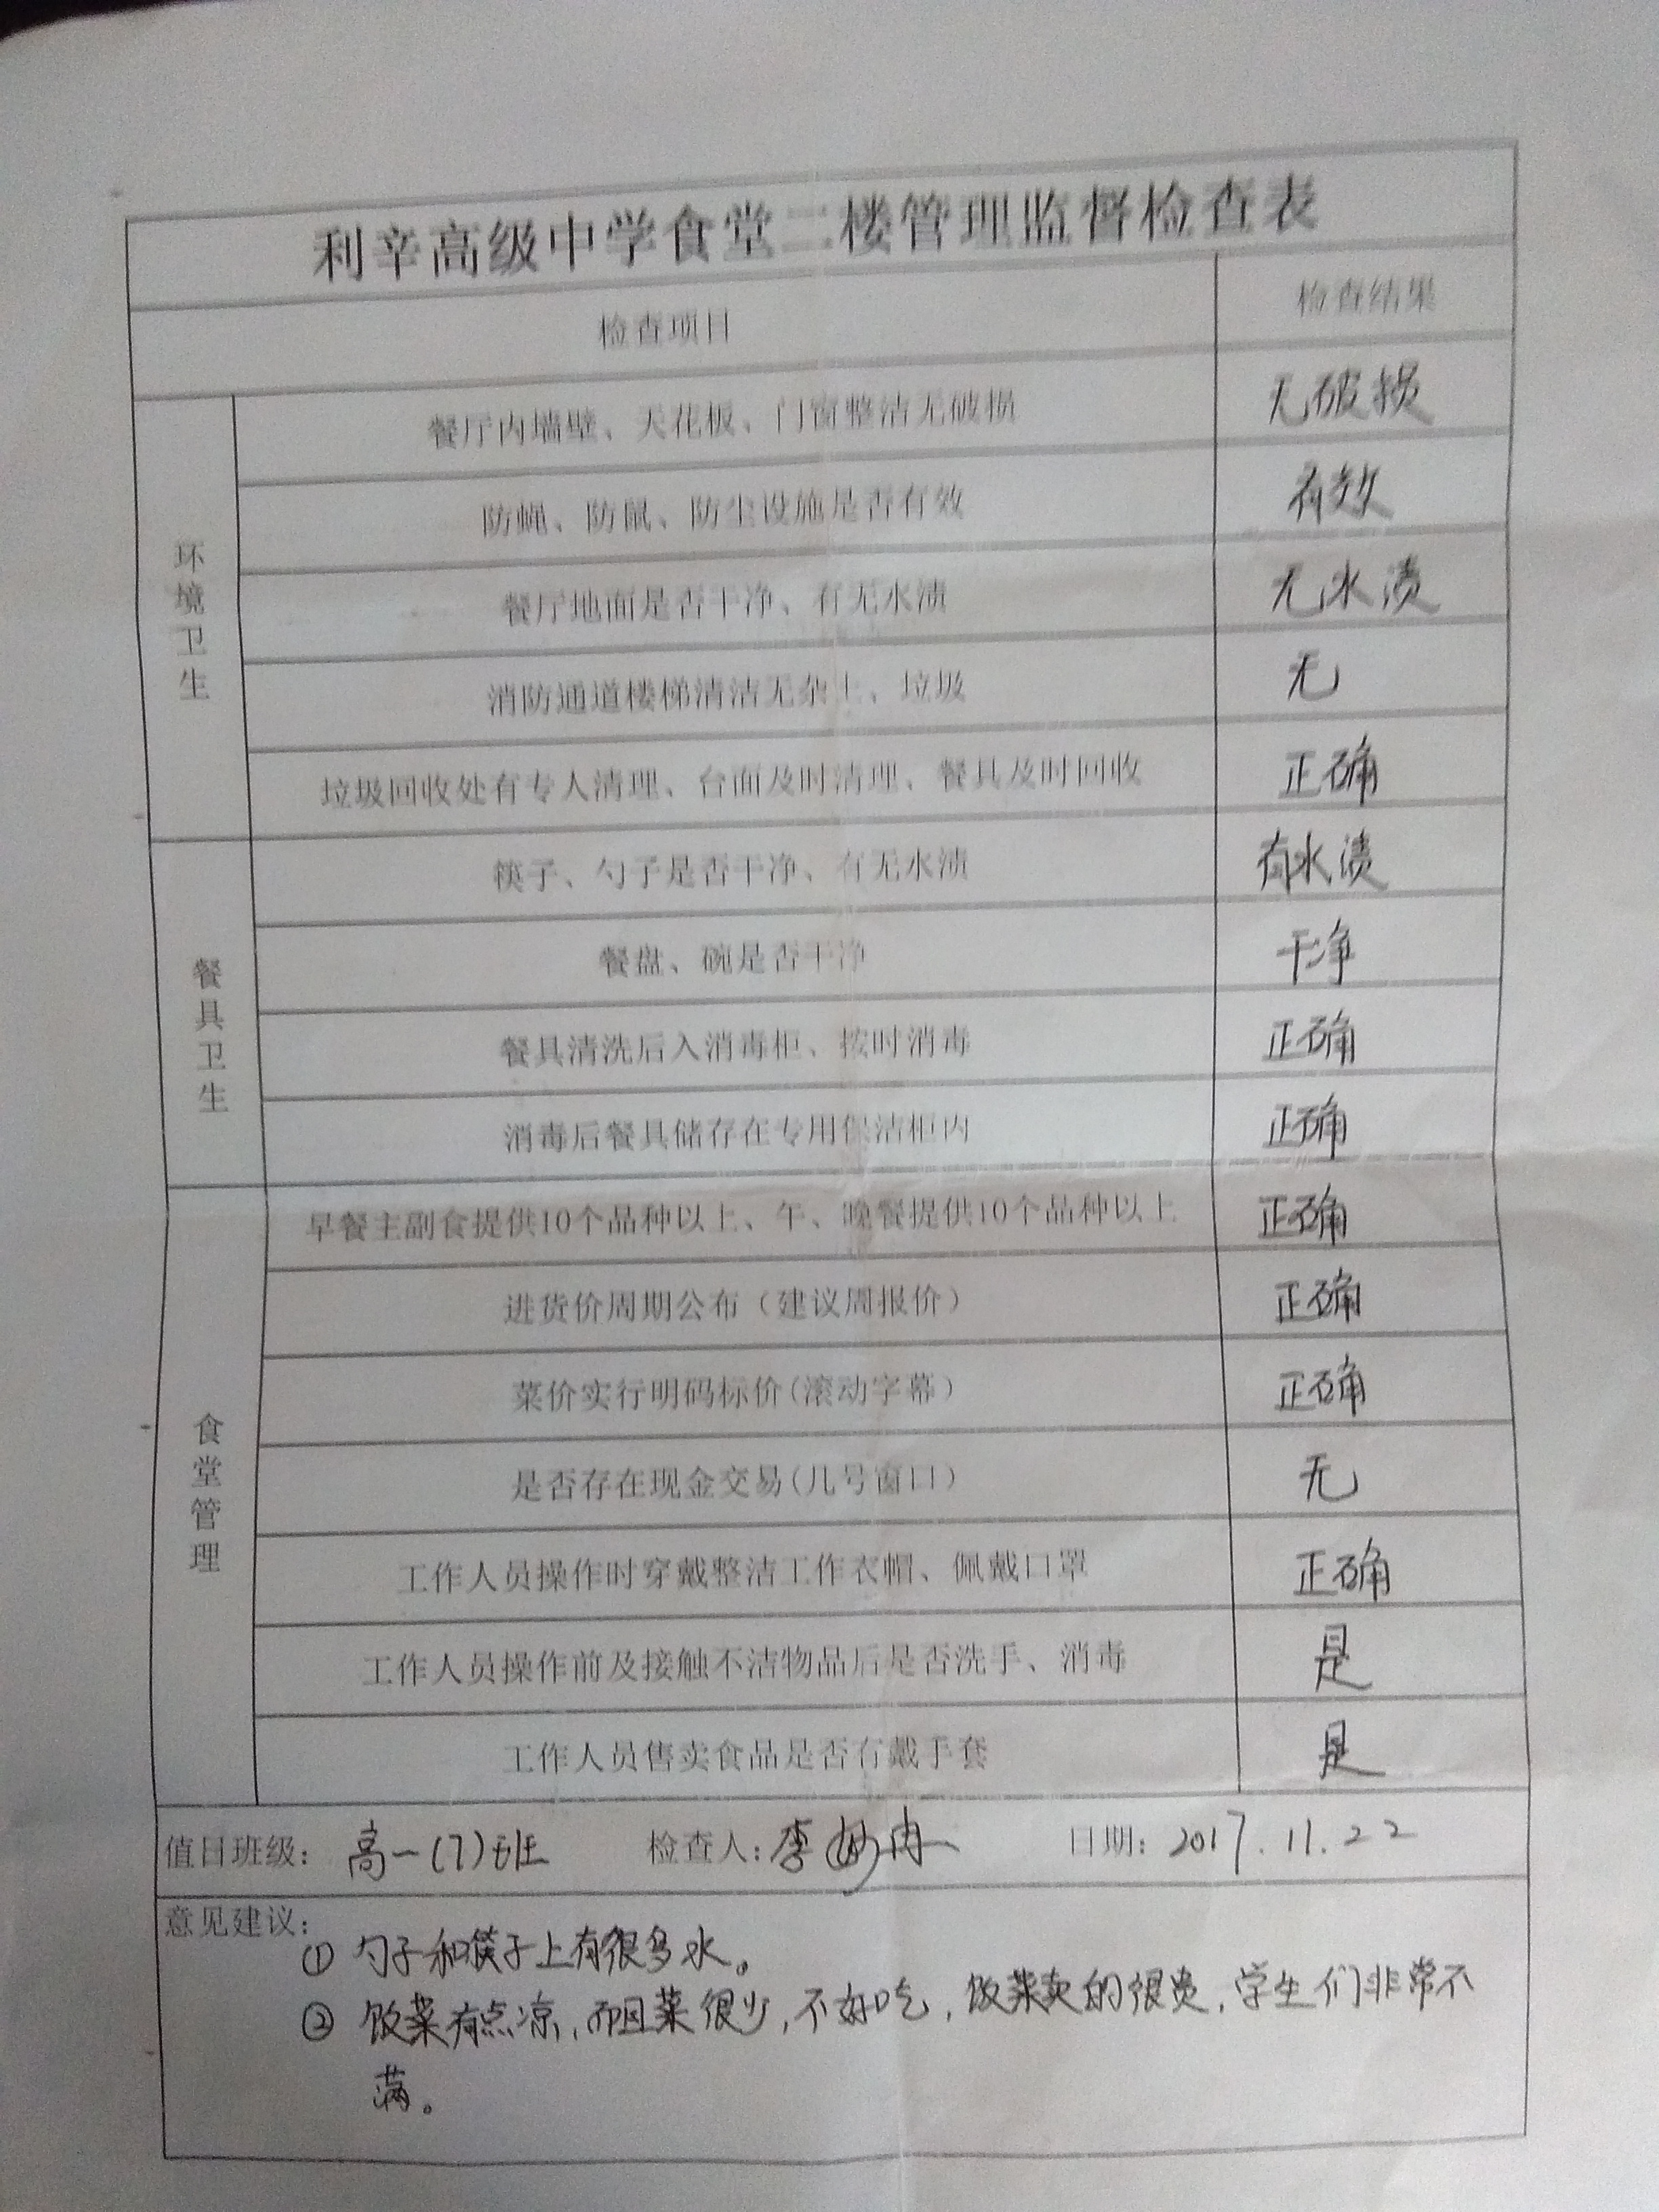 利辛高级中学食堂二楼管理监督检查表
检查项目 检查结果
环境卫生
餐厅内墙壁、天花板、门窗整洁无破损 无破损
防蝇、防鼠、防尘设施是否有效 有效
餐厅地面是否干净、有无水渍 无水渍
消防通道楼梯清洁无杂土、垃圾 无
垃圾回收处有专人清理、台面及时清理、餐具及时回收 正确
餐具卫生
筷子、勺子是否干净、有无水渍 有水渍
餐盘、碗是否干净 干净
餐具清洗后入消毒柜、按时消毒 正确
消毒后餐具储存在专用保洁柜内 正确
食堂管理
早餐主副食提供10个品种以上、午、晚餐提供10个品种以上 正确
进货价周期公布（建议周报价） 正确
菜价实行明码标价(滚动字幕) 正确
是否存在现金交易(几号窗口) 无
工作人员操作时穿戴整洁工作衣帽、佩戴口罩 正确
工作人员操作前及接触不洁物品后是否洗手、消毒 是
工作人员售卖食品是否有戴手套 是
值日班级：高一(7)班 检查人：李 冉 日期：2017.11.22
意见建议：
① 勺子和筷子上有很多水。
② 饭菜有点凉，而且菜很少，不好吃，饭菜卖的很贵，学生们非常不
满。